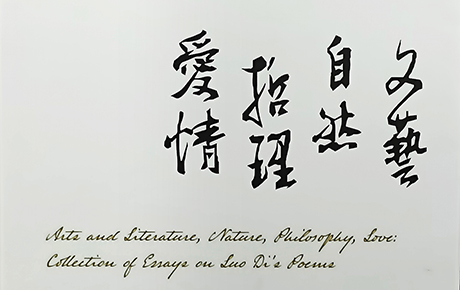 文藝
自然
哲理
愛情
Arts and Literature, Nature, Philosophy, Love:
Collection of Essays on Luo Di's Poems